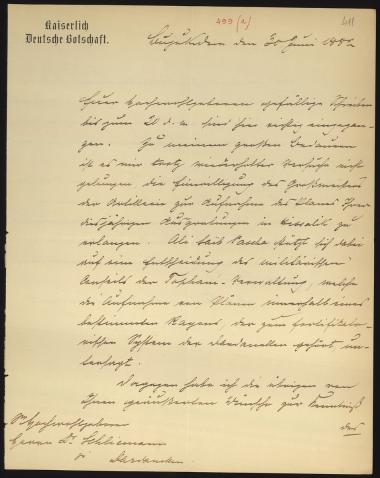 499 (a)
411
Kaiserlich
Deutsche Botschaft.
Bujukdere den 30 Juni 1882
Euer Hochwohlgeboren gefällige Schreiben
bis zum 20 d. M. sind hier richtig eingegan-
gen. Zu meinem großen Bedauern
ist es mir trotz wiederholter Versuche nicht
gelungen, die Einwilligung des Großmeisters
der Artillerie zur Aufnahme des Planes Ihrer
diesjährigen Ausgrabungen in Hissarlik zu
erlangen. Ali Saib Pascha stützt sich dabei
auf eine Entscheidung des militärischen
Beiraths der Tophane-Verwaltung, welche
die Aufnahme von Plänen innerhalb eines
bestimmten Rayons, der zum fortifikato-
rischen System der Dardanellen gehört un-
tersagt.
Dagegen habe ich die übrigen von
Ihnen geäußerten Wünsche zur Kenntniß
der
Sr Hochwohlgeboren
Herrn Dr Schliemann
Dardanellen.